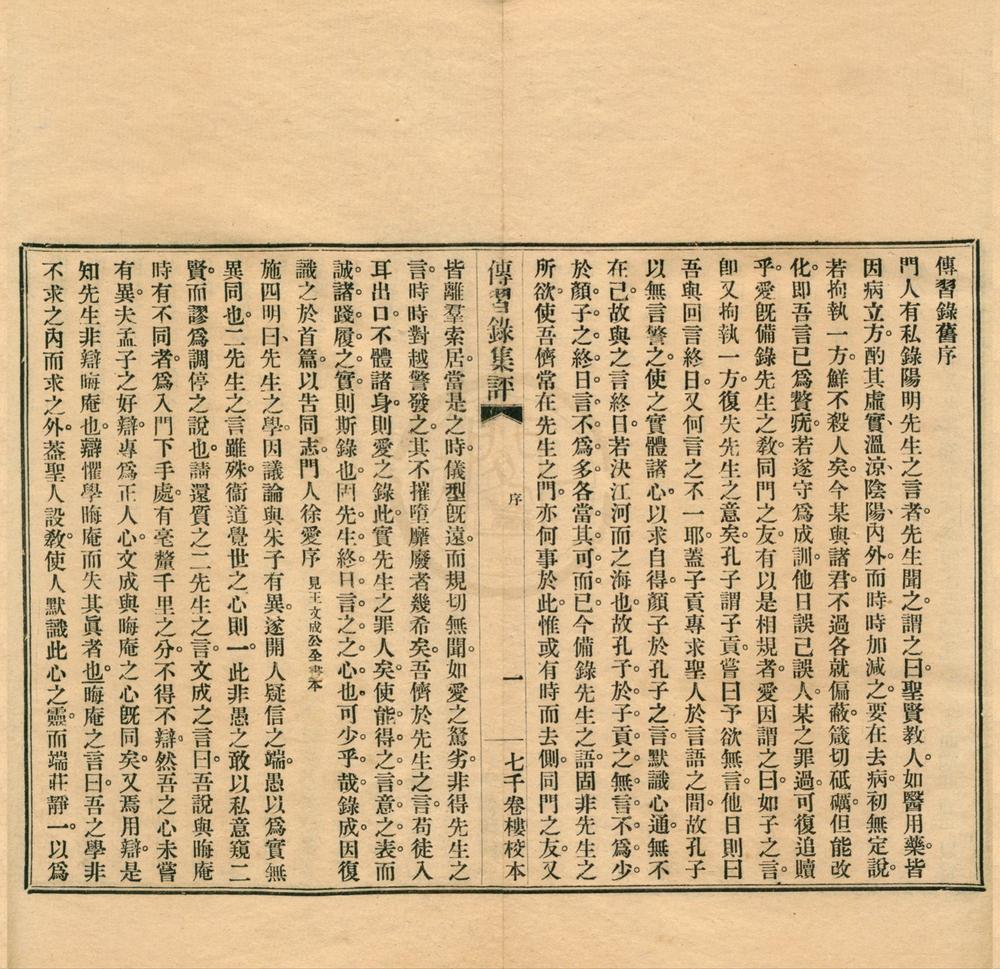 傳習錄舊序
門人有私錄陽明先生之言者。先生聞之。謂之曰。聖賢教人。如醫用藥。皆
因病立方。酌其虛實、溫涼、陰陽、內外。而時時加減之。要在去病。初無定說。
若拘執一方。鮮不殺人矣。今某與諸君。不過各就偏蔽。箴切砥礪。但能改
化。即吾言已爲贅疣。若遂守爲成訓。他日誤己誤人。某之罪過。可復追贖
乎。愛既備錄先生之教。同門之友。有以是相規者。愛因謂之曰。如子之言。
卽又拘執一方。復失先生之意矣。孔子謂子貢。嘗曰予欲無言。他日則曰
吾與回言終日。又何言之不一耶。蓋子貢專求聖人於言語之間。故孔子
以無言警之。使之實體諸心。以求自得。顏子於孔子之言。默識心通。無不
在己。故與之言終日。若決江河而之海也。故孔子於子貢之無言不爲少。
於顏子之終日言不爲多。各當其可而已。今備錄先生之語。固非先生之
所欲。使吾儕常在先生之門。亦何事於此。惟或有時而去側。同門之友。又
傳習錄集評
序
一
七千卷樓校本
皆離羣索居。當是之時。儀型既遠。而規切無聞。如愛之駑劣。非得先生之
言。時時對越警發之。其不摧墮靡廢者幾希矣。吾儕於先生之言。苟徒入
耳出口。不體諸身。則愛之錄此。實先生之罪人矣。使能得之言意之表。而
誠諸踐履之實。則斯錄也。固先生終日言之之心也。可少乎哉。錄成。因復
識之於首篇。以告同志。門人徐愛序 見王文成公全書本
施四明曰、先生之學。因議論與朱子有異。遂開人疑信之端。愚以爲實無
異同也。二先生之言雖殊。衞道覺世之心則一。此非愚之敢以私意窺二
賢。而謬爲調停之說也。請還質之二先生之言。文成之言曰。吾說與晦庵
時有不同者。爲入門下手處。有毫釐千里之分。不得不辯。然吾之心。未嘗
有異。夫孟子之好辯。專爲正人心。文成與晦庵之心既同矣。又焉用辯。是
知先生非辯晦庵也。辯懼學晦庵而失其眞者也。晦庵之言曰。吾之學。非
不求之內而求之外。蓋聖人設教。使人默識此心之靈。而端莊靜一。以爲